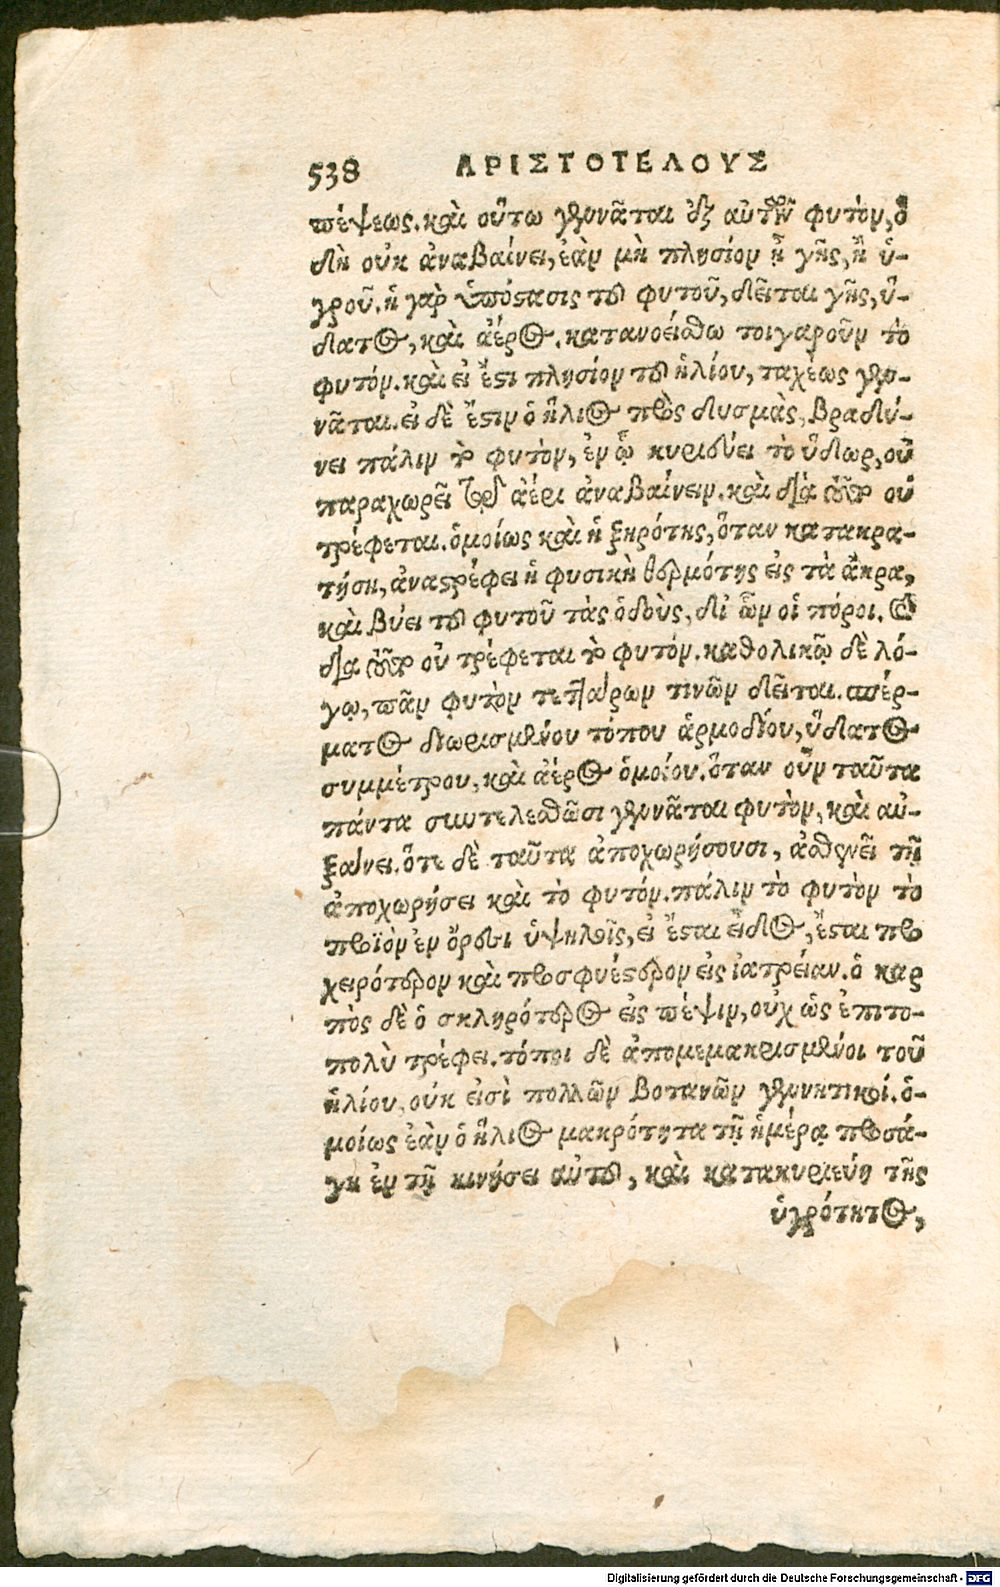 538 ΑΡΙΣΤΟΤΕΛΟΥΣ
πέψεως. καὶ οὕτω γεννᾶται ἐξ αὐτῶν φυτὸν, ὃ
δὴ οὐκ ἀναβαίνει, ἐὰν μὴ πλησίον ᾖ γῆς, ἢ ὑ-
γροῦ. ἡ γὰρ ὑπόστασις τοῦ φυτοῦ, δεῖται γῆς, ὕ-
δατος, καὶ ἀέρος. κατανοείσθω τοιγαροῦν τὸ
φυτόν. καὶ εἰ ἔστι πλησίον τοῦ ἡλίου, ταχέως γεν-
νᾶται. εἰ δὲ ἔστιν ὁ ἥλιος πρὸς δυσμὰς, βραδύ-
νει πάλιν τὸ φυτὸν, ἐν ᾧ κυριεύει τὸ ὕδωρ, οὐ
παραχωρεῖ τῷ ἀέρι ἀναβαίνειν. καὶ διὰ τοῦτο οὐ
τρέφεται. ὁμοίως καὶ ἡ ξηρότης, ὅταν κατακρα-
τήσῃ, ἀναστρέφει ἡ φυσικὴ θερμότης εἰς τὰ ἄκρα,
καὶ βύει τοῦ φυτοῦ τὰς ὁδοὺς, δι᾽ ὧν οἱ πόροι. καὶ
διὰ τοῦτο οὐ τρέφεται τὸ φυτόν. καθολικῷ δὲ λό-
γῳ, πᾶν φυτὸν τεττάρων τινῶν δεῖται. σπέρ-
ματος διωρισμένου τόπου ἁρμοδίου, ὕδατος
συμμέτρου, καὶ ἀέρος ὁμοίου. ὅταν οὖν ταῦτα
πάντα συντελεσθῶσι γεννᾶται φυτὸν, καὶ αὐ-
ξαίνει. ὅτε δὲ ταῦτα ἀποχωρήσουσι, ἀσθενεῖ τῇ
ἀποχωρήσει καὶ τὸ φυτόν. πάλιν τὸ φυτὸν τὸ
πρωϊὸν ἐν ὄρεσι ὑψηλοῖς, εἰ ἔσται εἶδος, ἔσται προ
χειρότερον καὶ προσφυέστερον εἰς ἰατρείαν. ὁ καρ
πὸς δὲ ὁ σκληρότερος εἰς πέψιν, οὐχ ὡς ἐπιτο-
πολὺ τρέφει. τόποι δὲ ἀπομεμακρισμένοι τοῦ
ἡλίου, οὐκ εἰσὶ πολλῶν βοτανῶν γεννητικοί. ὁ-
μοίως ἐὰν ὁ ἥλιος μακρότητα τῇ ἡμέρᾳ προσά-
γῃ ἐν τῇ κινήσει αὐτοῦ, καὶ κατακυριεύῃ τῆς
ὑγρότητος,
Digitalisierung gefördert durch die Deutsche Forschungsgemeinschaft - DFG